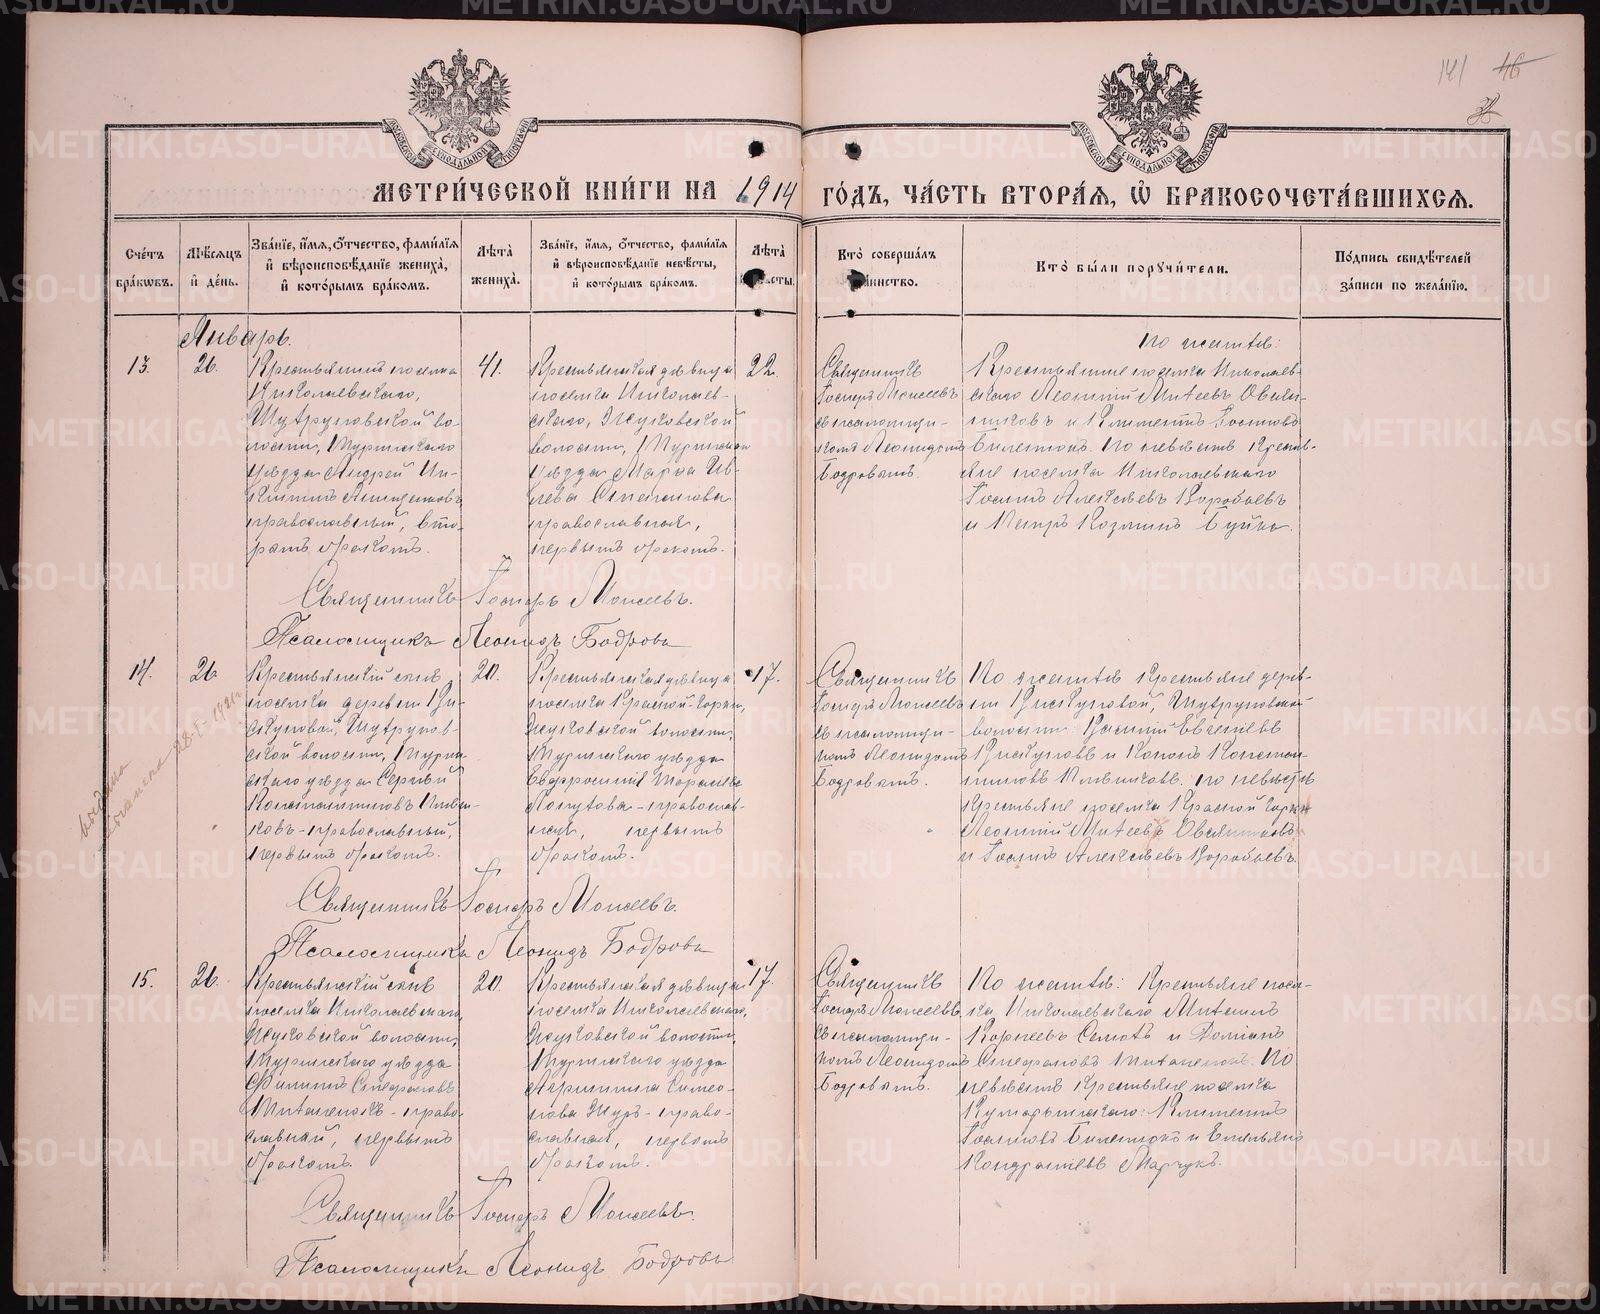 141 46
МЕТРИ́ЧЕСКОЙ КНИ́ГИ НА 1914 ГО́ДЪ, ЧА́СТЬ ВТОРА́Я, Ѡ БРАКОСОЧЕТА́ВШИХСЯ.
Сче́тъ бра́кѡвъ.
Мѣ́сяцъ и́ де́нь.
Зва́нїе, и́мя, о́тчество, фами́лїя и́ вѣроисповѣ́данїе жениха̀, и́ кото́рымъ бра́комъ.
Лѣта̀ жениха̀.
Зва́нїе, и́мя, о́тчество, фами́лїя и́ вѣроисповѣ́данїе невѣ́сты, и́ кото́рымъ бра́комъ.
Лѣта̀
Кто̀ соверша́лъ
Кто̀ бы́ли поручи́тели.
По́дпись свидѣ́телей за́писи по жела́нїю.
Январь.
13.
26.
Крестьянинъ поселка
Николаевскаго,
во-
лости, Туринскаго
уѣзда Андрей Ни-
китинъ
православный, вто-
рымъ бракомъ.
41.
Крестьянская дѣвица
поселка Николаев-
скаго, Жуковской
волости, Туринскаго
уѣзда Марѳа
Степанова
православная,
первымъ бракомъ.
22.
Священникъ
Госпаръ Моисеевъ
съ псаломщи-
комъ Леонидомъ
Бодровымъ.
По женихѣ:
Крестьяне поселка Николаев-
скаго Леонтій Матѳеевъ Овсян-
никовъ и Климентъ
По невѣстѣ Кресть-
яне поселка Николаевскаго
Іосифъ Алексѣевъ Воробьевъ
и Петръ Козминъ Буйко.
Священникъ Госпаръ Моисеевъ.
Псаломщикъ Леонидъ Бодровъ
14.
26.
Крестьянскій сынъ
поселка деревни
ской волости, Турин-
скаго уѣзда Сергѣй
Константиновъ
ковъ - православный,
первымъ бракомъ.
20.
Крестьянская дѣвица
поселка Красной-Горки,
Жуковской волости,
Туринскаго уѣзда
Евфросинія Тарасіева
православ-
ная, первымъ
бракомъ.
17.
Священникъ
Госпаръ Моисеевъ
съ псаломщи-
комъ Леонидомъ
Бодровымъ.
По женихѣ Крестьяне дерев-
ни
волости: Евгеніевъ
и Кононъ Констан-
тиновъ по невѣстѣ
Крестьяне поселка Красной Горки
Леонтій Матѳеевъ Овсянниковъ
и Іосифъ Алексѣевъ Воробьевъ.
выдана
28-I-1921г
Священникъ Госпаръ Моисеевъ.
Псаломщикъ Леонидъ Бодровъ
15.
26.
Крестьянскій сынъ
поселка Николаевскаго,
Жуковской волости,
Туринскаго уѣзда
Филиппъ Стефановъ
право-
славный, первымъ
бракомъ.
20.
Крестьянская дѣвица
поселка Николаевскаго,
Жуковской волости,
Туринскаго уѣзда
Агриппина Симео-
нова Жукъ - право-
славная, первымъ
бракомъ.
17.
Священникъ
Госпаръ Моисеевъ
съ псаломщи-
комъ Леонидомъ
Бодровымъ.
По женихѣ: Крестьяне посел-
ка, Николаевскаго
Корнѣевъ и Доміанъ
Стефановъ По
невѣстѣ Крестьяне поселка
Климентъ
и Емельянъ
Кондратіевъ Марчукъ.
Священникъ Госпаръ Моисеевъ.
Псаломщикъ Леонидъ Бодровъ
METRIKI.GASO-URAL.RU